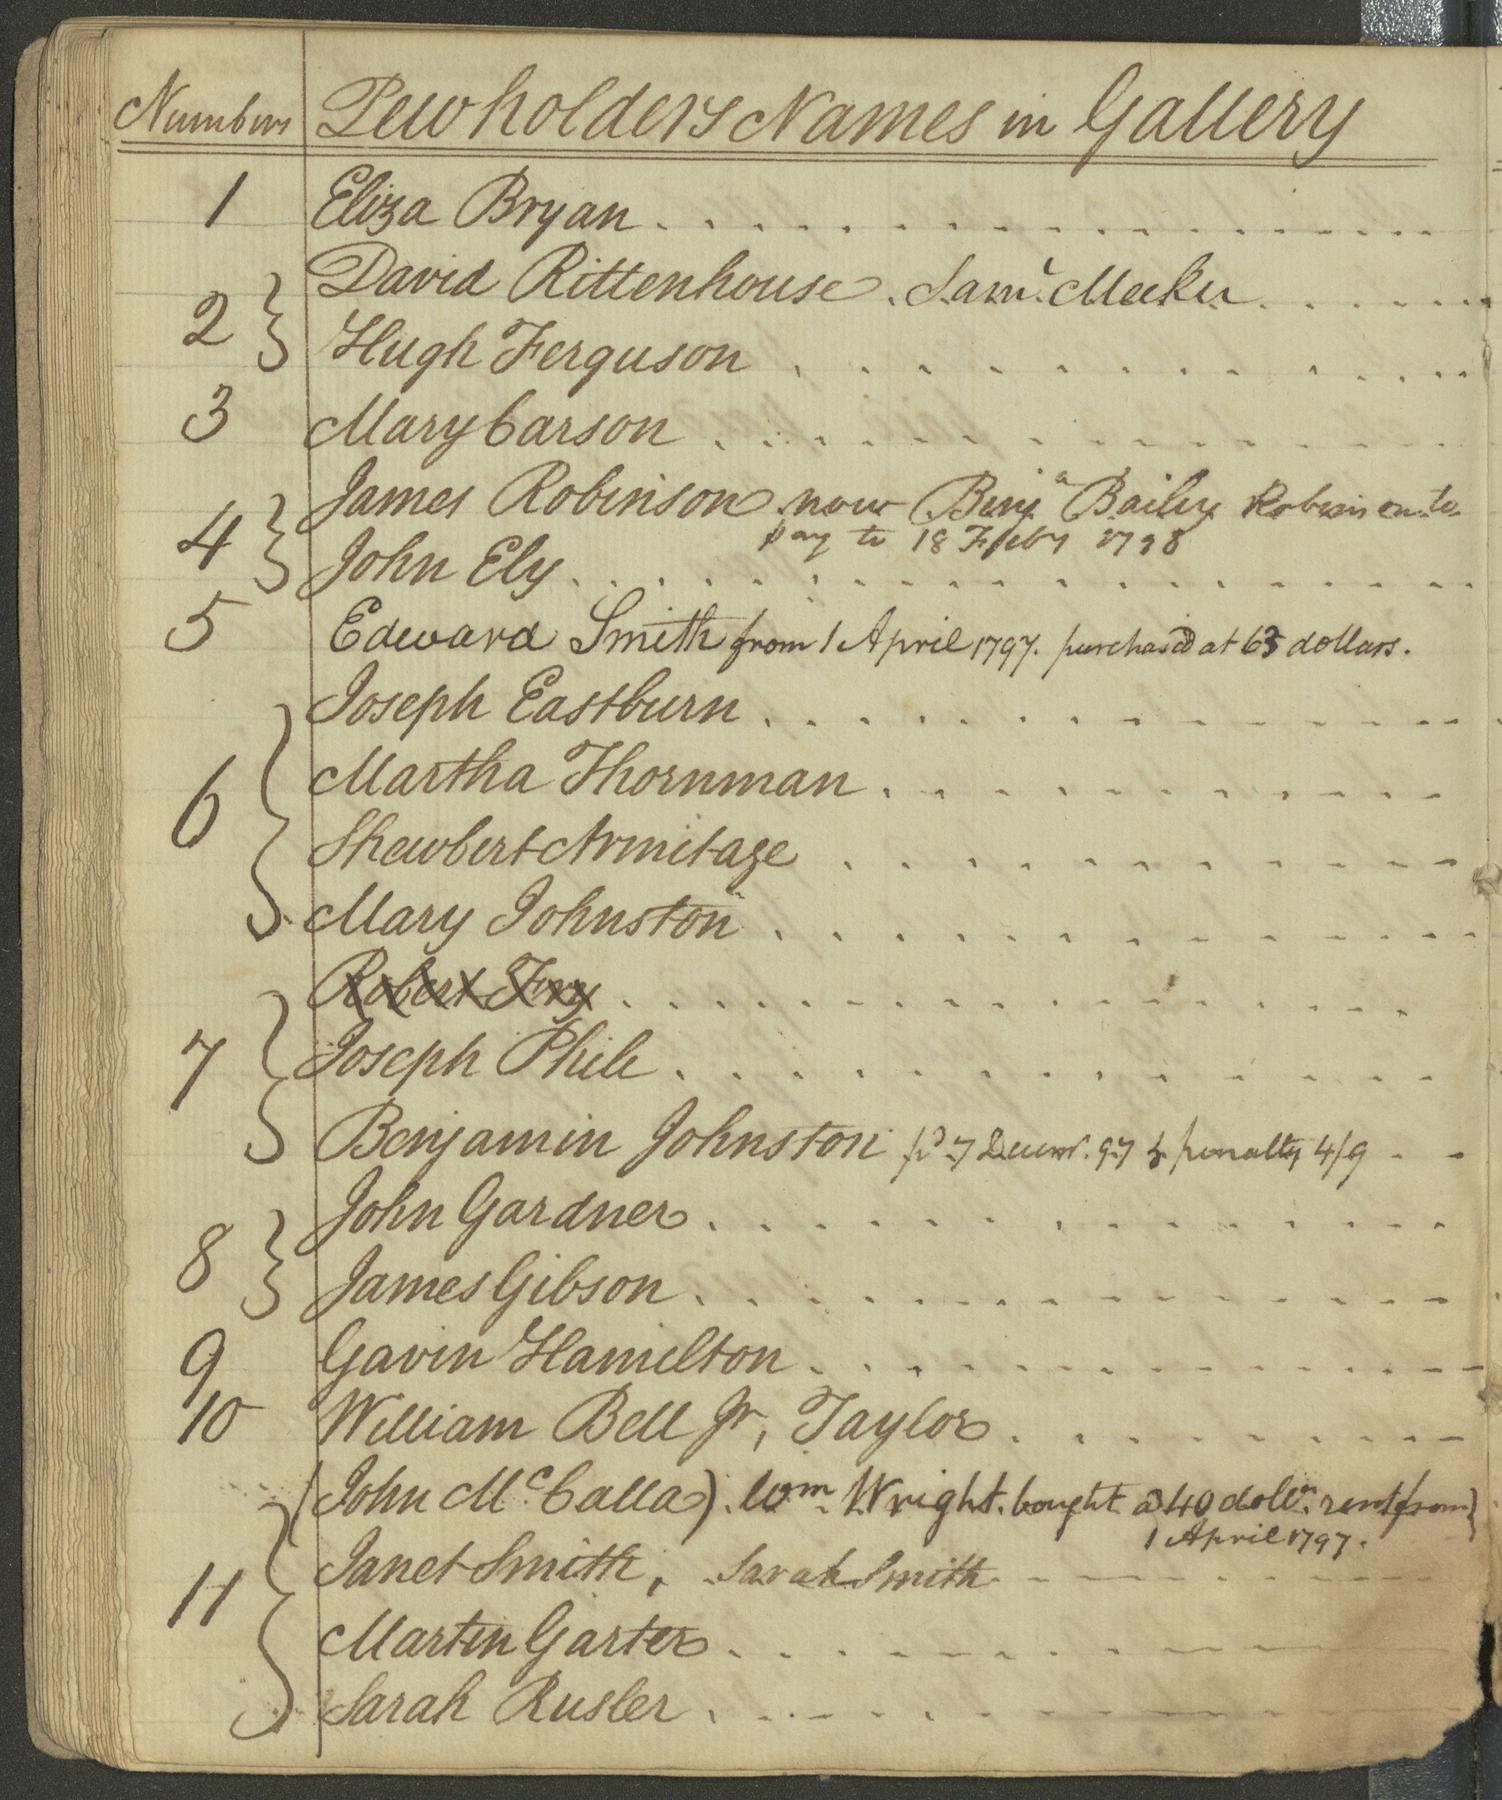 Numbers Pewholders Names in Gallery
1 Eliza Bryan
David Rittenhouse. Saml. Meeker
2 Hugh Ferguson
3 Mary Carson
James Robinson now Benja Bailey Robinson to
pay to 18 Feby 1798
4 John Ely
5 Edward Smith from 1 April 1797. purchased at 63 dollars.
Joseph Eastburn
Martha Thornman
6 Shewbert Armitage
Mary Johnston
Robert Fry
7 Joseph Phile
Benjamin Johnston pd 7 Decemr. 97 & penalty 4/9
John Gardner
8 James Gibson
9 Gavin Hamilton
10 William Bell Jr, Taylor
(John McCalla) Wm Wright. bought a 40 dolls. rent from
1 April 1797.
11 Janet Smith, Sarah Smith
Martin Garter
Sarah Rusler